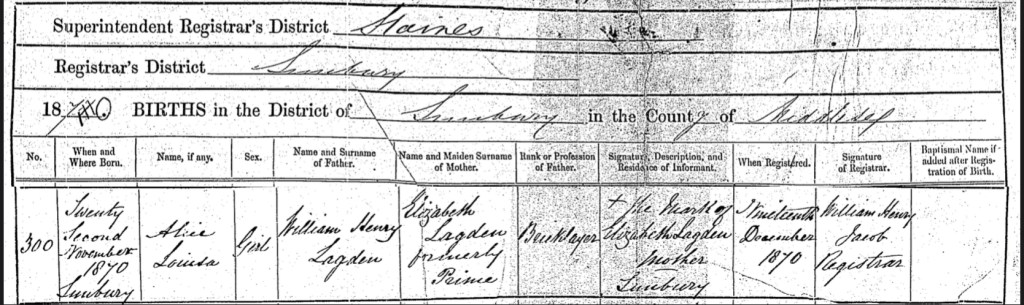 Superintendent Registrar's District Staines
Registrar's District Sunbury
1870 BIRTHS in the District of Sunbury in the County of Middlesex
No.
When and
Where Born.
Name, if any.
Sex.
Name and Surname
of Father.
Name and Maiden Surname
of Mother.
Rank or Profession
of Father.
Signature, Description, and
Residence of Informant.
When Registered.
Signature
of Registrar.
Baptismal Name if
added after Regis-
tration of Birth.
300
Twenty
Second
November
1870
Sunbury
Alice
Louisa
Girl
William Henry
Lagden
Elizabeth
Lagden
formerly
Prime
Bricklayer
+ The Mark of
Elizabeth Lagden
Mother
Sunbury
Nineteenth
December
1870
William Henry
Jacob
Registrar